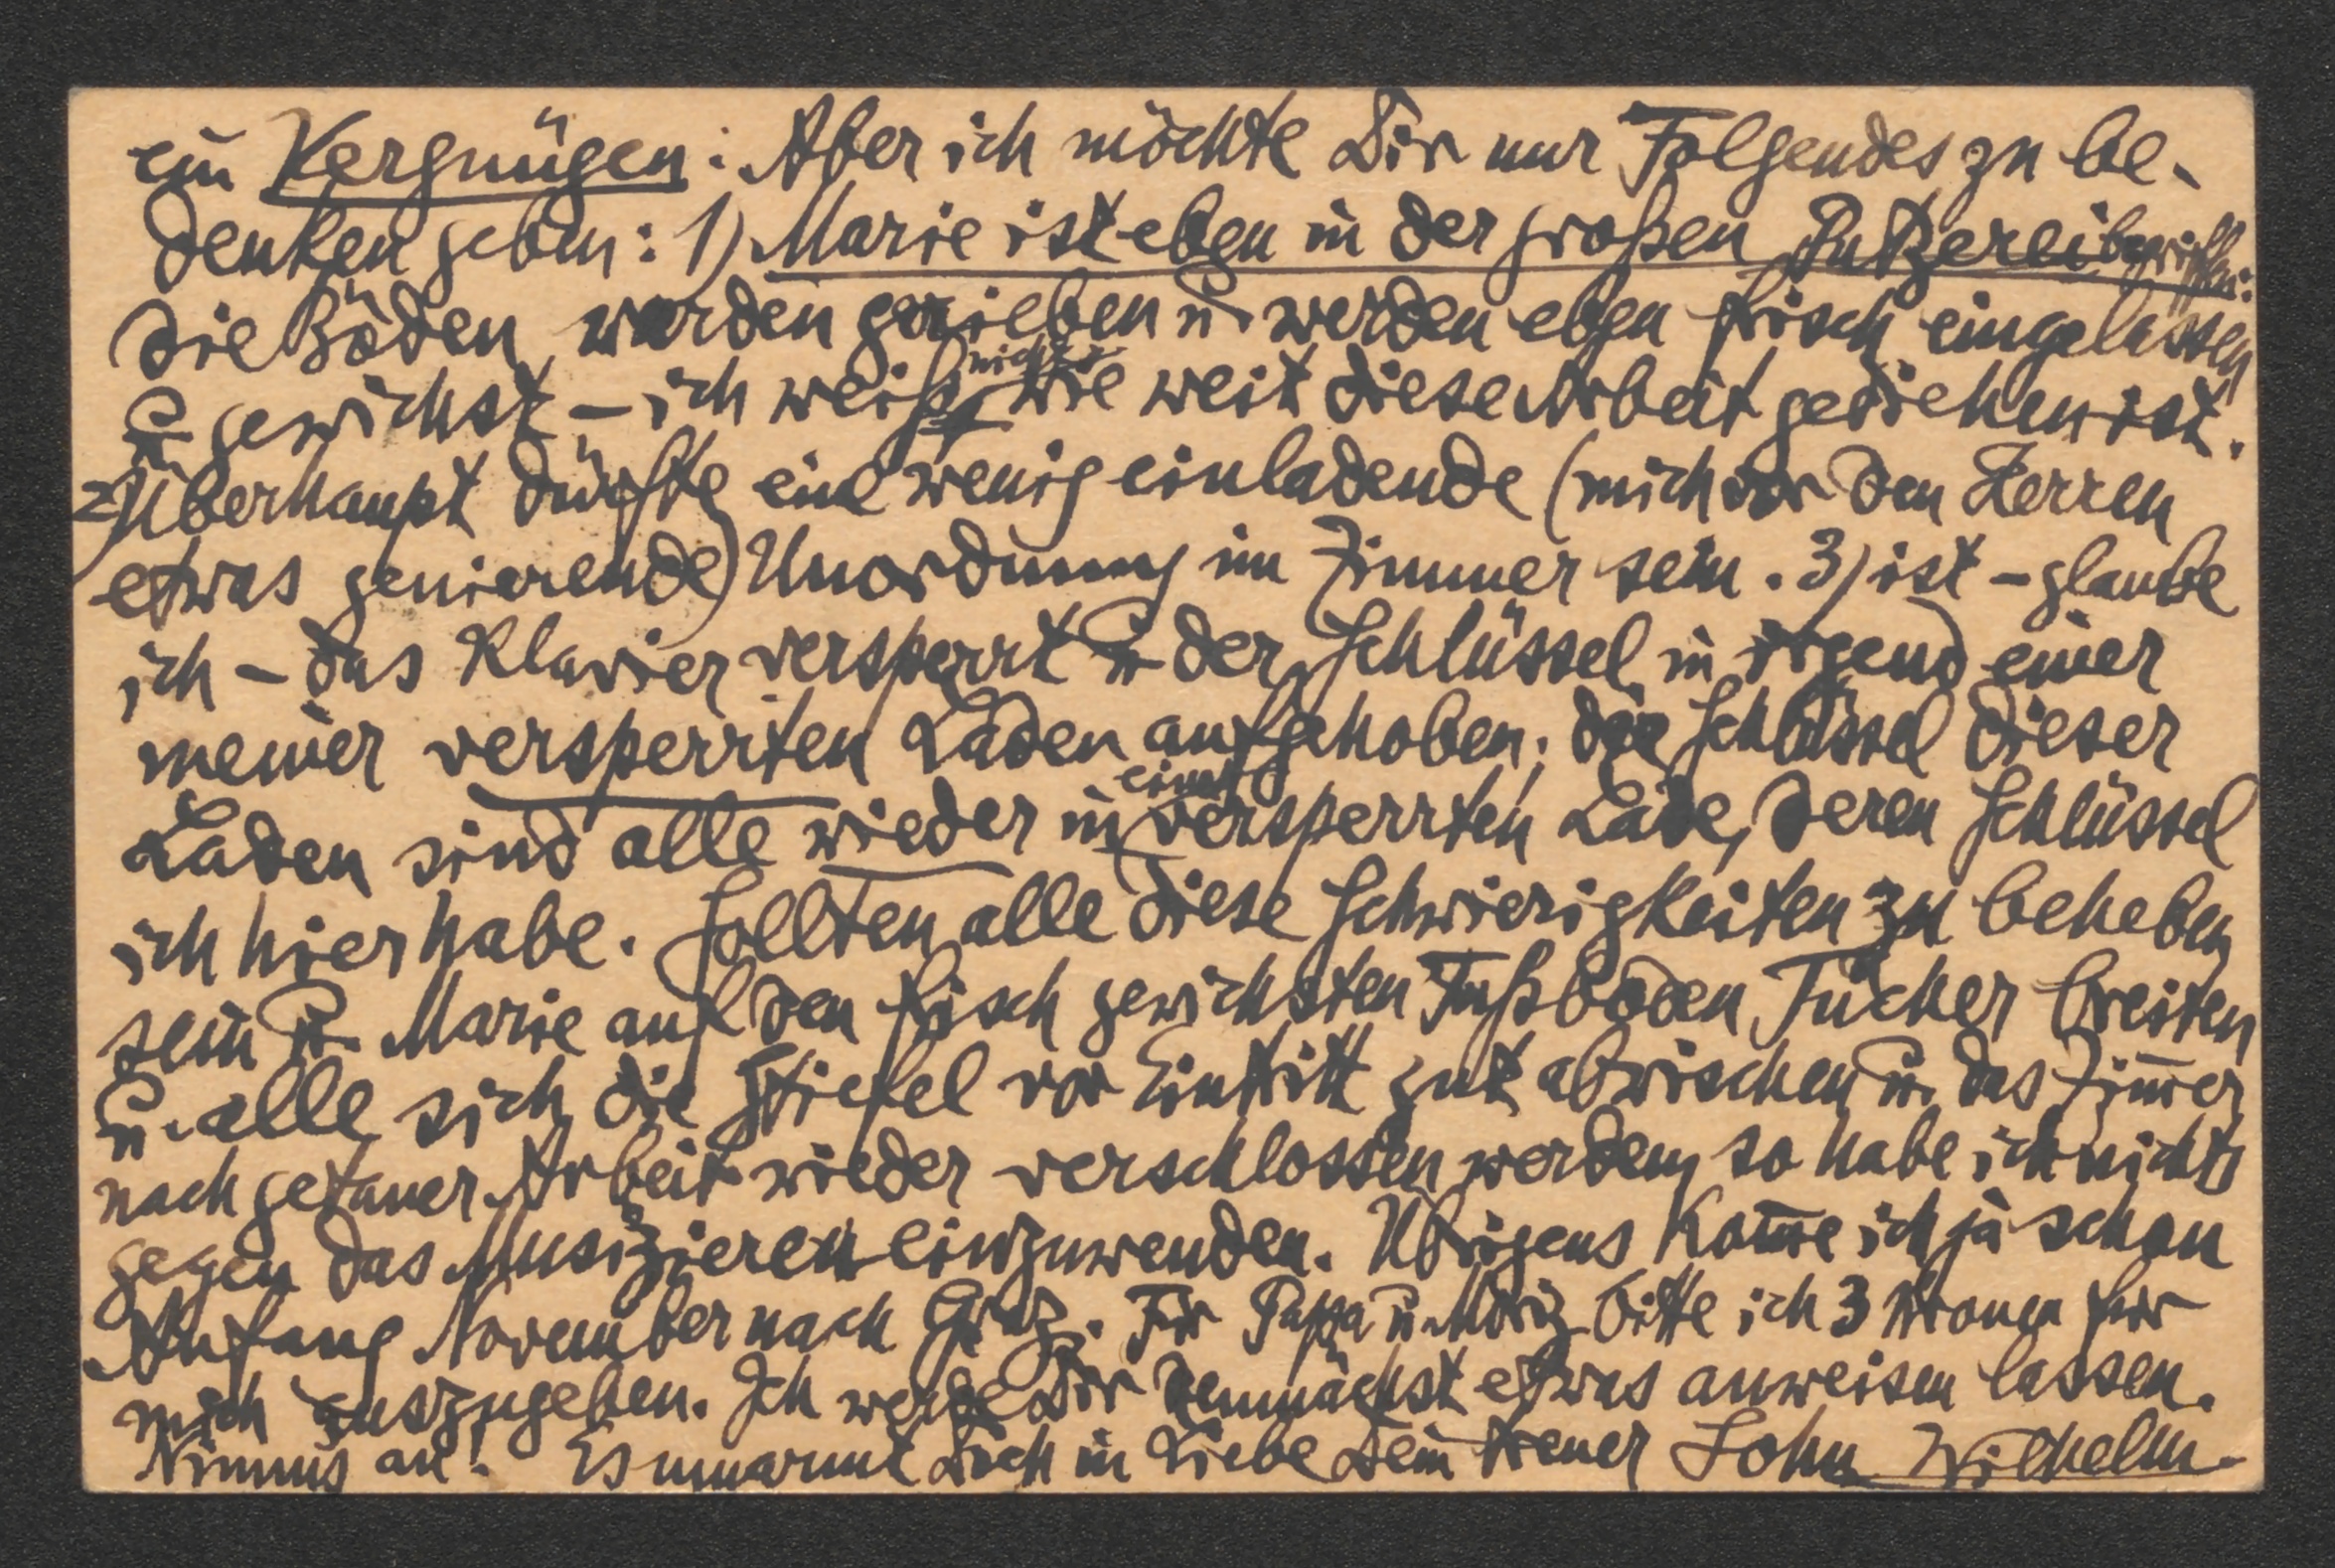 ein Vergnügen: Aber ich möchte Dir nur Folgendes zu be-
denken geben: 1) Marie ist eben in der großen Putzerei begriffen:
Die Böden wurden gerieben u. werden eben frisch eingelassen
u. gewichst – ich weiß nicht, wie weit diese Arbeit gediehen ist.
2) Überhaupt dürfte eine wenig einladende (mich vor den Herren
etwas genierende) Unordnung im Zimmer sein. 3) ist – glaube
ich – das Klavier versperrt u. der Schlüssel in irgend einer
meiner versperrten Laden aufgehoben; die Schlüssel dieser
Laden sind alle wieder in einer versperrten Lade, deren Schlüssel
ich hier habe. Sollten alle diese Schwierigkeiten zu beheben
sein u. Marie auf den frisch gewichsten Fußboden Tücher breiten
u. alle sich die Stiefel vor Eintritt gut abwischen u. das Zim̅er
nach getaner Arbeit wieder verschlossen werden, so habe ich nichts
gegen das Musizieren einzuwenden. Übrigens kom̅e ich ja schon
Anfang November nach Graz. Für Papa u. Moriz bitte ich 3 Kronen für
mich auszugeben. Ich werde Dir demnächst etwas anweisen lassen.
Nimms an! Es umarmt Dich in Liebe Dein treuer Sohn Wilhelm.